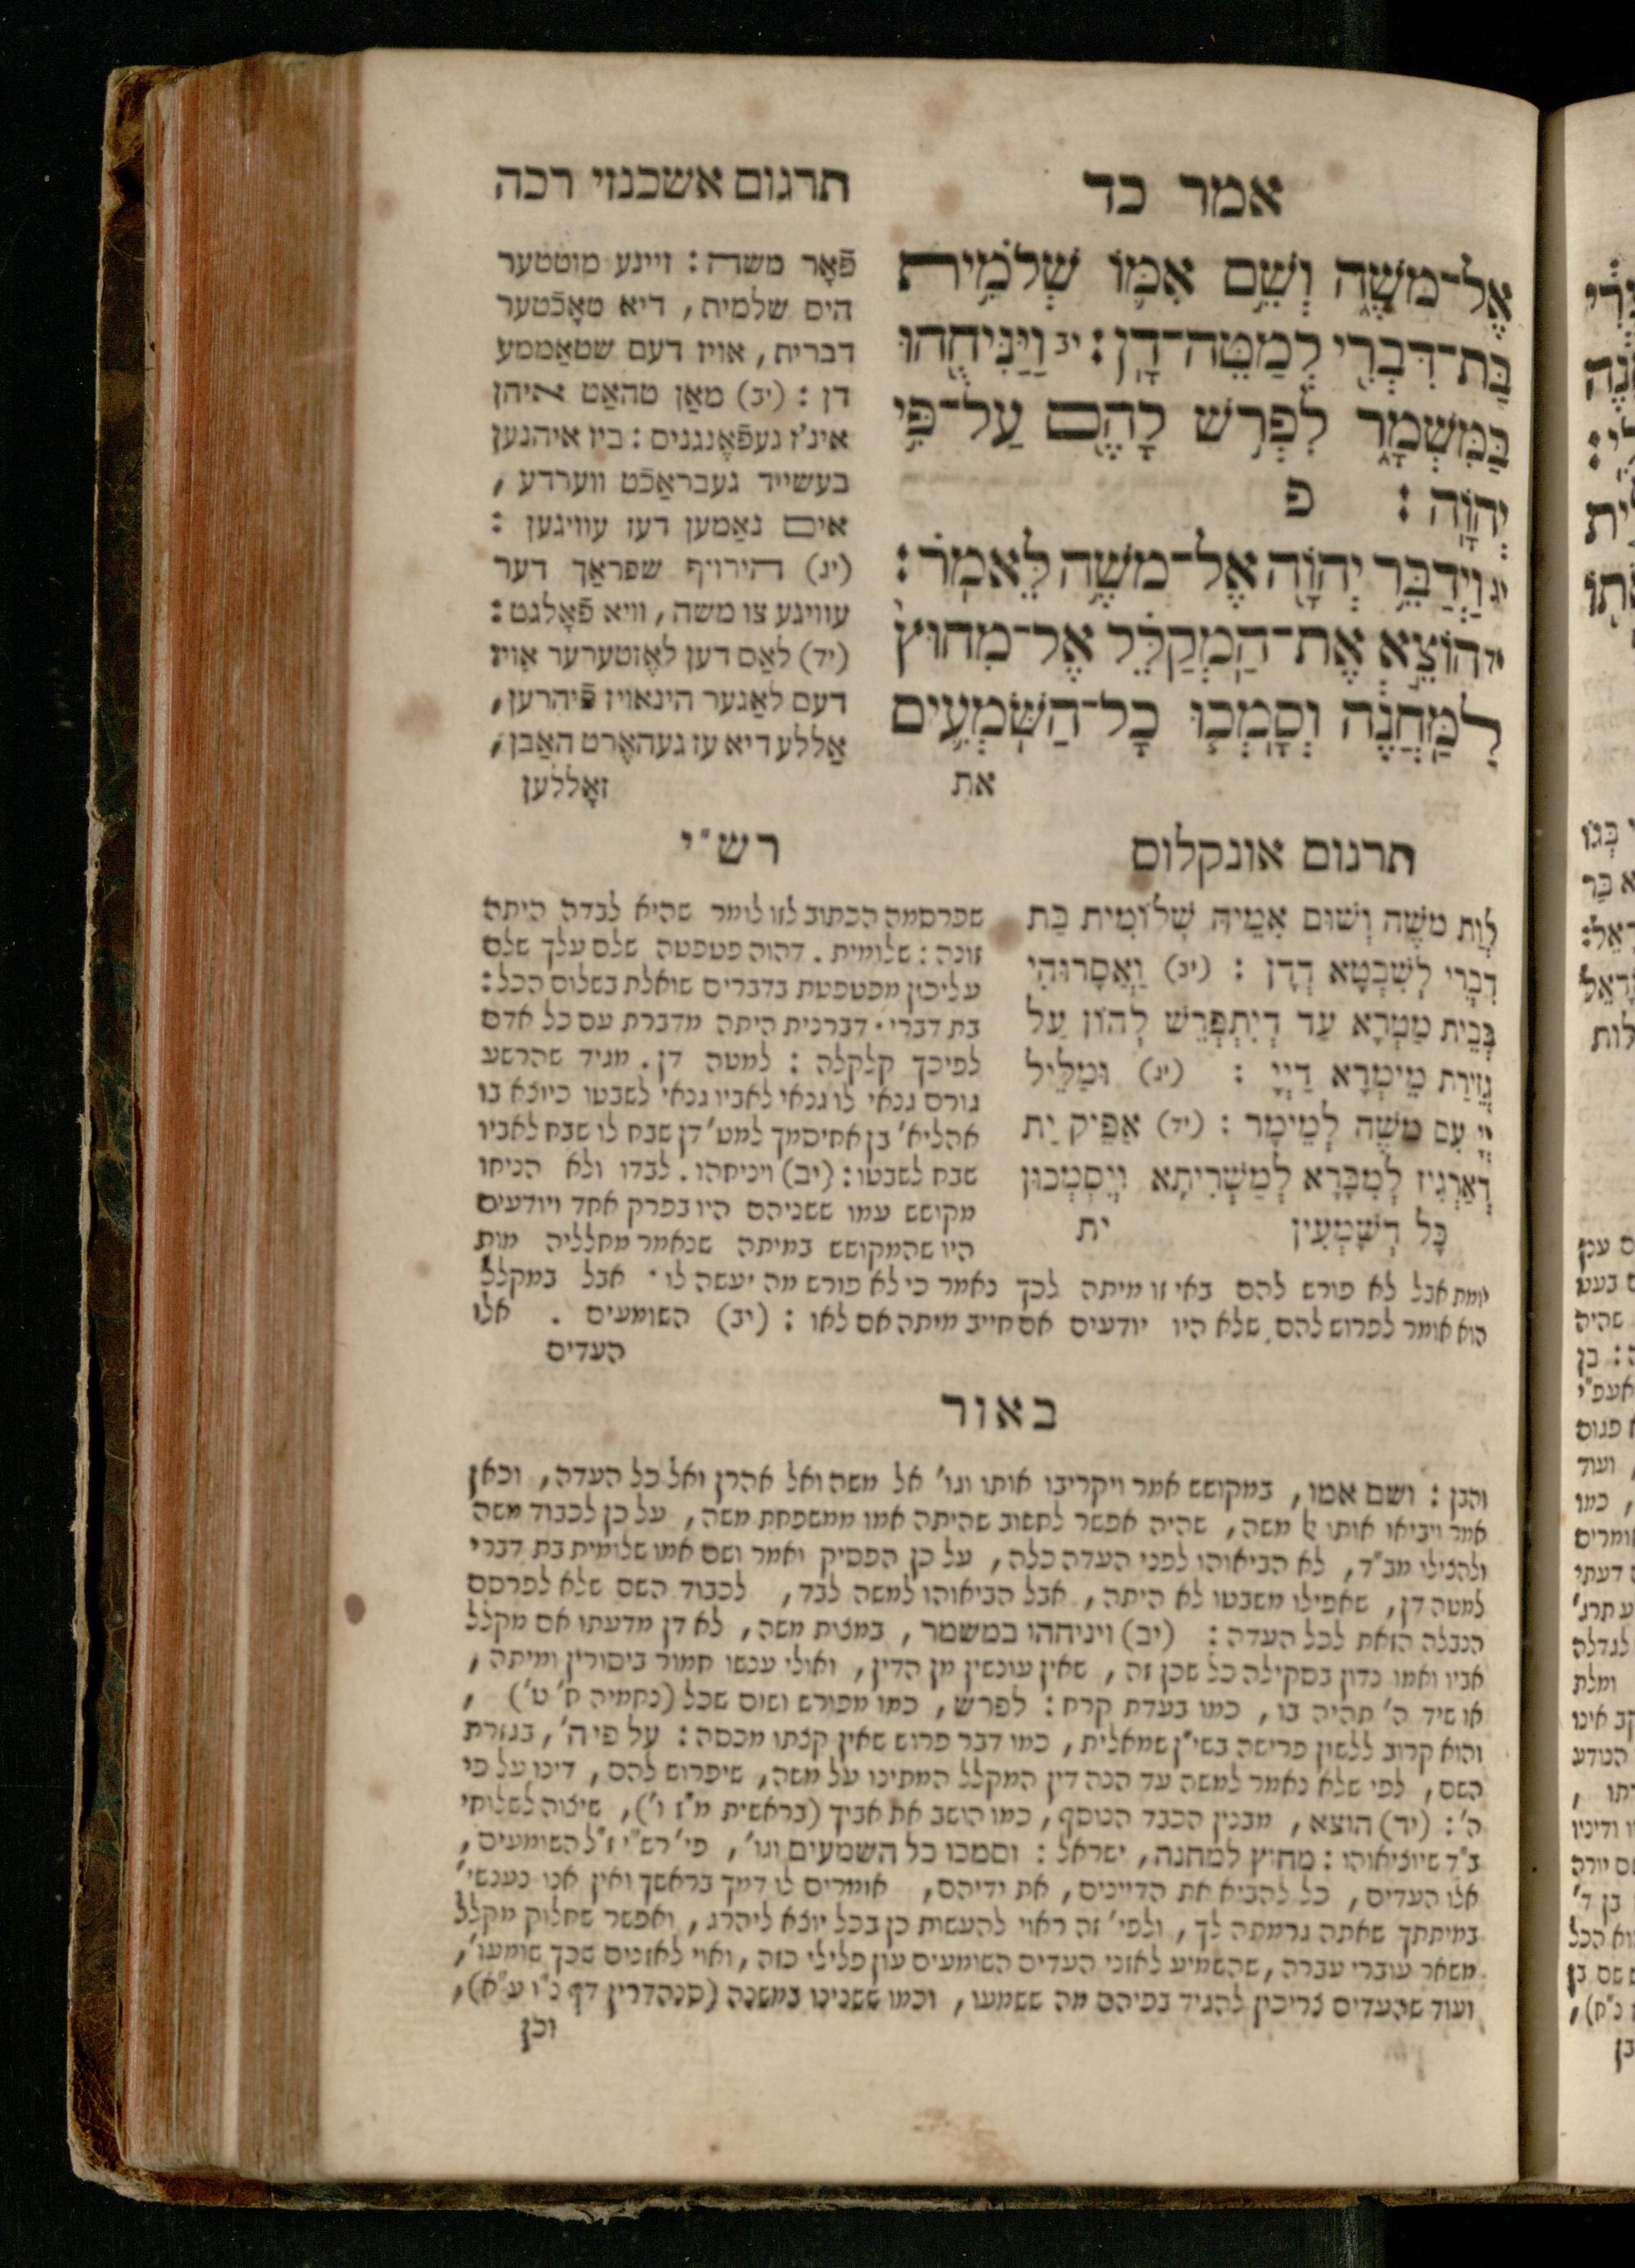 אמר כד
אֶל־מֹשֶׁ֑ה וְשֵׁ֥ם אִמּ֛וֹ שְׁלֹמִ֥ית
בַּת־דִּבְרִ֖י לְמַטֵּה־דָֽן: יב וַיַּנִּיחֻ֖הוּ
בַּמִּשְׁמָ֑ר לִפְרֹ֥שׁ לָהֶ֖ם עַל־פִּ֥י
יְהוָֹֽה: פ
יג וַיְדַבֵּ֥ר יְהוָֹ֖ה אֶל־מֹשֶׁ֥ה לֵּאמֹֽר:
יד הוֹצֵ֣א אֶת־הַֽמְקַלֵּ֗ל אֶל־מִחוּץ֙
לַֽמַּחֲנֶ֔ה וְסָמְכ֧וּ כָֽל־הַשֹּׁמְעִ֛ים
את
תרגום אשכנזי רכה
פֿאָר משה: זיינע מוטטער
הים שלמית, דיא טאָכֿטער
דברית, אויז דעם שטאַממע
דן: (יב) מאַן טהאַט איהן
אינ'ז געפֿאֶנגנים: ביז איהנען
בעשייד געבראַכֿט ווערדע,
אים נאַמען דעז עוויגען:
(יג) הירויף שפראַך דער
עוויגע צו משה, וויא פֿאָלגט:
(יד) לאַס דען לאֶזטערער אויז
דעם לאַגער הינאויז פֿיהרען,
אַללע דיא עז געהאֶרט האַבן,
זאָללען
תרגום אונקלוס
לְוַת מֹשֶׁה וְשׁוּם אִמֵּיהּ שְׁלוֹמִית בַּת
דִבְרֵי לְשִׁבְטָא דְדָן: (יב) וְאַסְרוּהִי
בְּבֵית מַטְרָא עַד דְיִתְפְּרֵשׁ לְהוֹן עַל
גְזֵירַת מֵימְרָא דַיְיָ: (יג) וּמַלֵּיל
יְיָ עִם מֹשֶׁה לְמֵימַר: (יד) אַפֵּיק יַת
דְאַרְגֵיז לְמִבָּרָא לְמַשְׁרִיתָא וְיִסְמְכוּן
כָּל דְשָׁמְעִין ית
רש״י
שפרסמה הכתוב לזו לומר שהיא לבדה היתה
זונה: שלומית. דהוה פטפטה שלם עלך שלם
עליכון מפטפטת בדברים שואלת בשלום הכל:
בת דברי. דברנית היתה מדברת עם כל אדם
לפיכך קלקלה: למטה דן. מגיד שהרשע
גורם גנאי לו גנאי לאביו גנאי לשבטו כיוצא בו
אהליא' בן אחיסמך למט' דן שבח לו שבח לאביו
שבח לשבטו: (יב) ויניחהו. לבדו ולא הניחו
מקושש עמו ששניהם היו בפרק אחד ויודעים
היו שהמקושש במיתה שנאמר מחלליה מות
יומת אבל לא פורש להם באי זו מיתה לכך נאמר כי לא פורש מה יעשה לו. אבל במקלל
הוא אומר לפרוש להם שלא היו יודעים אם חייב מיתה אם לאו: (יב) השומעים. אלו
העדים
באור
והבן: ושם אמו, במקושש אמר ויקריבו אותו וגו' אל משה ואל אהרן ואל כל העדה, וכאן
אמר ויביאו אותו אל משה, שהיה אפשר לחשוב שהיתה אמו ממשפחת משה, על כן לכבוד משה
ולהצילו מב״ד, לא הביאוהו לפני העדה כלה, על כן הפסיק ואמר ושם אמו שלומית בת דברי
למטה דן, שאפילו משבטו לא היתה, אבל הביאוהו למשה לבד, לכבוד השם שלא לפרסם
הנבלה הזאת לכל העדה: (יב) ויניחהו במשמר, במצות משה, לא דן מדעתו אם מקלל
אביו ואמו נדון בסקילה כל שכן זה, שאין עונשין מן הדין, ואולי ענשו חמור ביסורין ומיתה,
או שיד ה' תהיה בו, כמו בעדת קרח: לפרש, כמו מפורש ושום שכל (נחמיה ח' ט'),
והוא קרוב ללשון פרישה בשי״ן שמאלית, כמו דבר פרוש שאין קצתו מכסה: על פי ה', בגזרת
השם, לפי שלא נאמר למשה עד הנה דין המקלל המתינו על משה, שיפרוש להם, דינו על פי
ה': (יד) הוצא, מבנין הכבד הנוסף, כמו הושב את אביך (בראשית מ״ז ו'), שיצוה לשלוחי
ב״ד שיוציאוהו: מחוץ למחנה, ישראל: וסמכו כל השמעים וגו', פי' רש״י ז״ל השומעים,
אלו העדים, כל להביא את הדיינים, את ידיהם, אומרים לו דמך בראשך ואין אנו נענשי'
במיתתך שאתה גרמתה לך, ולפי' זה ראוי להעשות כן בכל יוצא ליהרג, ואפשר שחלוק מקלל
משאר עוברי עברה, שהשמיע לאזני העדים השומעים עון פלילי כזה, ואוי לאזנים שכך שומעו',
ועוד שהעדים צריכין להגיד בפיהם מה ששמעו, וכמו ששנינו במשנה (סנהדרין דף נ״ו ע״א),
וכן